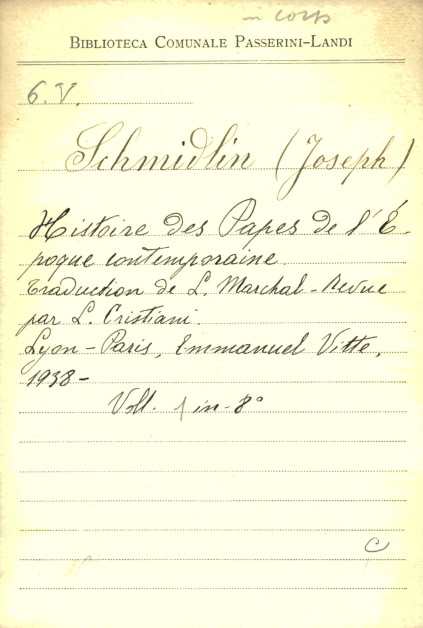 in corso
BIBLIOTECA COMUNALE PASSERINI-LANDI
6.V.
Schmidlin (Joseph)
Histoire des Papes de l'É-
poque contemporaine.
Traduction de L. Marchal - Revue
par L. Cristiani.
Lyon - Paris, Emmanuel Vitte,
1938 -
Voll. 1 in-8°
C